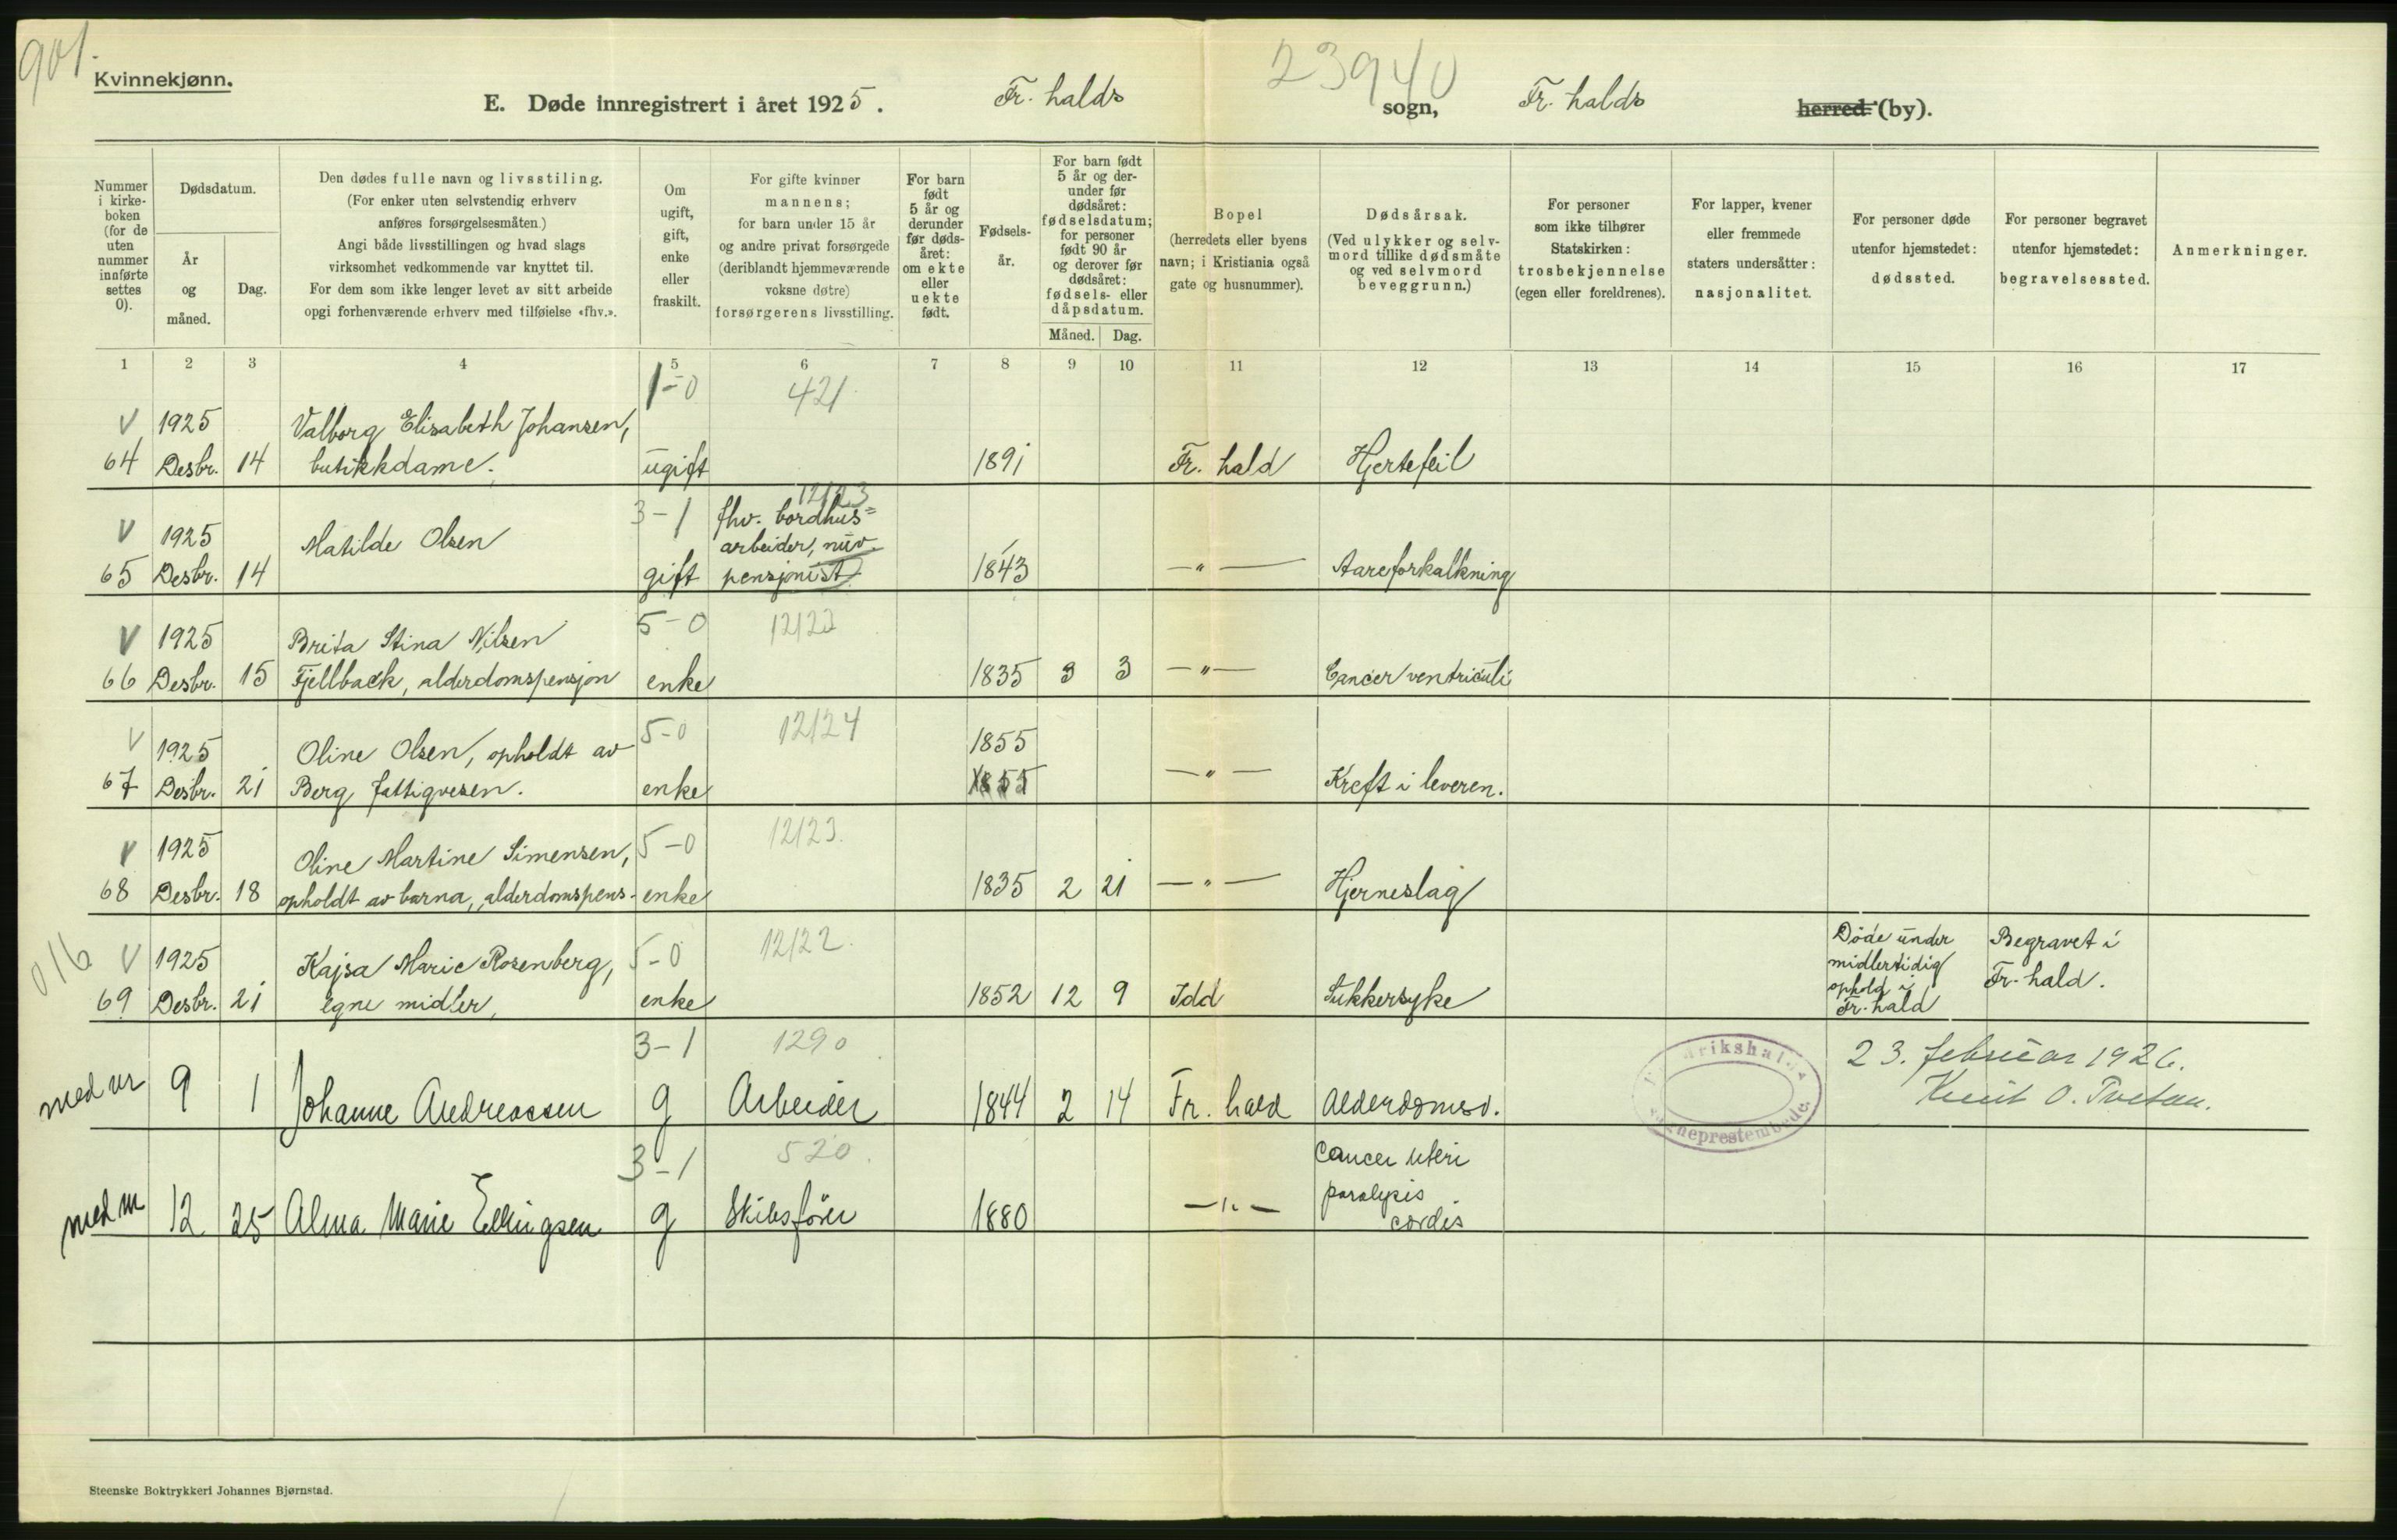 901.
Kvinnekjønn.
E. Døde innregistrert i året 1925. Fr. halds sogn, Fr. halds herred (by).
23940
Nummer i kirkeboken (for de uten nummer innførte settes 0).
Dødsdatum.
År og måned.
Dag.
Den dødes fulle navn og livsstiling.
(For enker uten selvstendig erhverv
anføres forsørgelsesmåten.)
Angi både livsstillingen og hvad slags
virksomhet vedkommende var knyttet til.
For dem som ikke lenger levet av sitt arbeide
opgi forhenværende erhverv med tilføielse «fhv.».
Om
ugift,
gift,
enke
eller
fraskilt.
For gifte kvinner
mannens;
for barn under 15 år
og andre privat forsørgede
(deriblandt hjemmeværende
voksne døtre)
forsørgerens livsstilling.
For barn
født
5 år og
derunder
før døds-
året:
om ekte
eller
uekte
født.
Fødsels-
år.
For barn født
5 år og der-
under før
dødsåret:
fødselsdatum;
for personer
født 90 år
og derover før
dødsåret:
fødsels- eller
dåpsdatum.
Måned. Dag.
Bopel
(herredets eller byens
navn; i Kristiania også
gate og husnummer).
Dødsårsak.
(Ved ulykker og selv-
mord tillike dødsmåte
og ved selvmord
beveggrunn.)
For personer
som ikke tilhører
Statskirken:
trosbekjennelse
(egen eller foreldrenes).
For lapper, kvener
eller fremmede
staters undersåtter:
nasjonalitet.
For personer døde
utenfor hjemstedet:
dødssted.
For personer begravet
utenfor hjemstedet:
begravelsessted.
Anmerkninger.
1 2 3 4 5 6 7 8 9 10 11 12 13 14 15 16 17
1-0 421
V 1925 Valborg Elisabeth Johansen,
64 Desbr. 14 butikkdame. ugift 1891 Fr. hald Hjertefeil
3-1 12123
V 1925 Matilde Olsen fhv. bordhus=
arbeider, nuv.
65 Desbr. 14 gift pensjonist 1843 —"— Aareforkalkning
5-0 12122
V 1925 Brita Stina Nilsen
66 Desbr. 15 Fjellback, alderdomspensjon enke 1835 3 3 —"— Cancer ventriculi
5-0 12124
V 1925 Oline Olsen, opholdt av 1855
67 Desbr. 21 Berg fattigvesen. enke 1855 —"— Kreft i leveren.
5-0 12123.
V 1925 Oline Martine Simensen,
68 Desbr. 18 opholdt av barna, alderdomspens. enke 1835 2 21 —"— Hjerneslag
016 5-0 12122.
V 1925 Kajsa Marie Rosenberg,
69 Desbr. 21 egne midler, enke 1852 12 9 Idd Sukkersyke
Døde under
midlertidig
ophold i
Fr. hald
Begravet i
Fr. hald.
3-1 1290
9 1 Johanne Andreassen g Arbeider 1844 2 14 Fr. hald Alderdomssv.
23. februar 1926.
Knut O. Tvetau.
3-1 520.
12 25 Alma Marie Ellingsen g Skibsfører 1880 —"— Cancer uteri
paralysis
cordis
Steenske Boktrykkeri Johannes Bjørnstad.